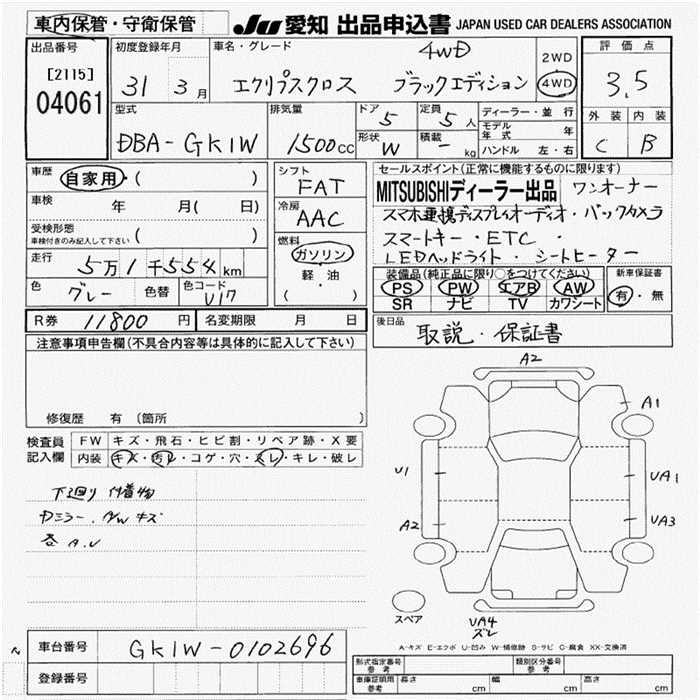 車内保管・守衛保管
JU 愛知 出品申込書 JAPAN USED CAR DEALERS ASSOCIATION
出品番号
[2115]
04061
初度登録年月
31 3月
車名・グレード
4WD
エクリプスクロス ブラックエディション
2WD
4WD
評価点
3.5
外装 内装
C B
型式
DBA-GK1W
排気量
1500cc
ドア
5
形状
W
定員
5人
積載
- kg
ディーラー・並行
モデル年式 年
ハンドル 左・右
車歴
自家用・( )
車検 年 月( 日)
受検形態
車検付きのみ記入して下さい ( )
走行
5万1千554km
色 グレー 色替
色コード
U17
シフト
FAT
冷房
AAC
燃料
ガソリン
軽・油
( )
セールスポイント(正常に機能するものに限ります)
MITSUBISHIディーラー出品 ワンオーナー
スマホ連携ディスプレイオーディオ・バックカメラ
スマートキー・ETC・
LEDヘッドライト・シートヒーター
装備品(純正品に限り○をつけてください)
PS PW エアB AW
SR ナビ TV カワシート
新車保証書
有・無
R券 11800円 名変期限 月 日
後日品
取説・保証書
注意事項申告欄(不具合内容等は具体的に記入して下さい)
修復歴 有 (箇所 )
検査員記入欄
FW キズ・飛石・ヒビ割・リペア跡・X要
内装 キズ・汚レ・コゲ・穴・スレ・キレ・破レ
下廻り付着物
ドミラー、A/W キズ
各A.U
A2
A1
U1
UA1
A2
UA3
スペア
UA4
ズレ
A-キズ E-エクボ U-凹み W-補修跡 S-サビ C-腐食 XX-交換済
車台番号 GK1W-0102696
登録番号
型式指定番号 参考
類別区分番号 参考
車庫証明用 参考 長さ cm 幅 cm 高さ cm